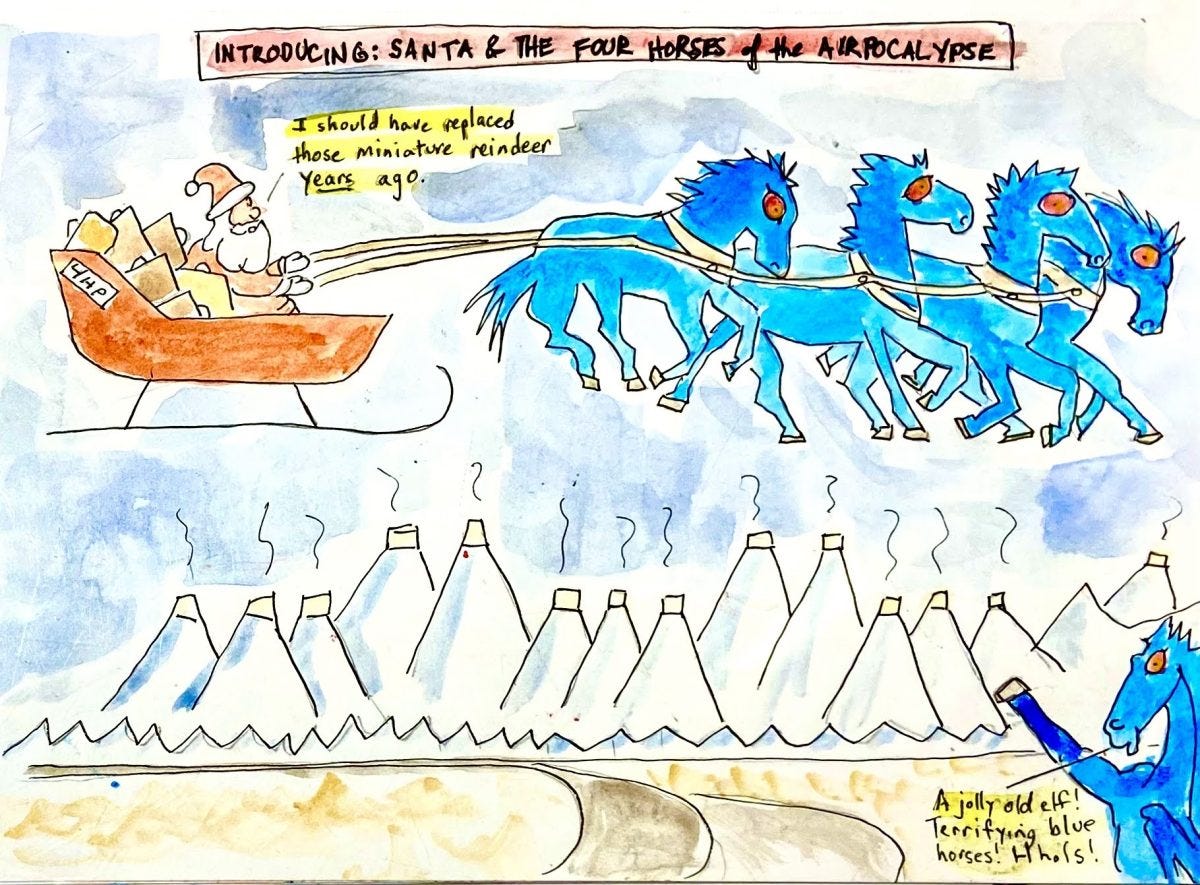 INTRODUCING: SANTA & THE FOUR HORSES of the AIRPOCALYPSE
I should have replaced
those miniature reindeer
years ago.
4HP
A jolly old elf!
Terrifying blue
horses! H hols!